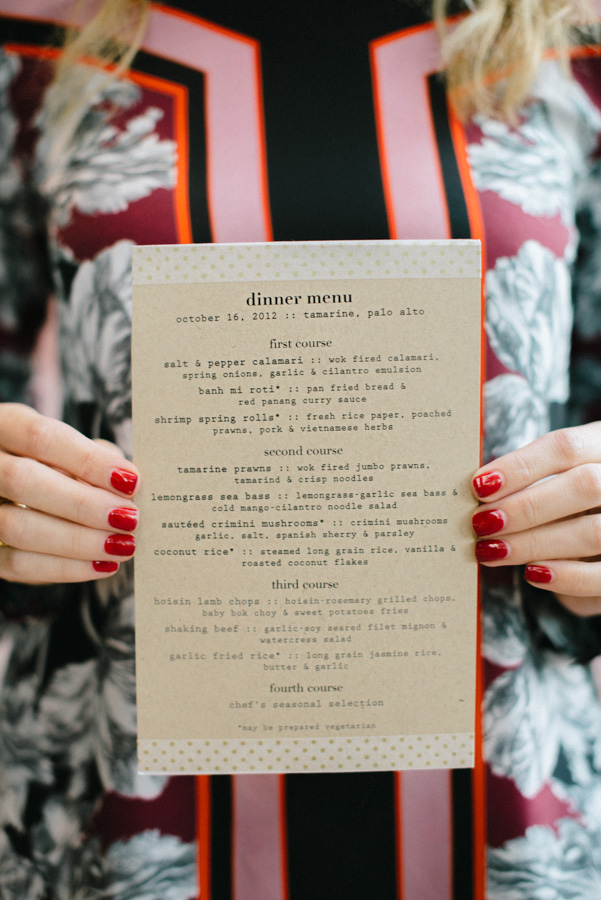 dinner menu
october 16, 2012 :: tamarine, palo alto
first course
salt & pepper calamari :: wok fired calamari,
spring onions, garlic & cilantro emulsion
banh mi roti* :: pan fried bread &
red panang curry sauce
shrimp spring rolls* :: fresh rice paper, poached
prawns, pork & vietnamese herbs
second course
tamarine prawns :: wok fired jumbo prawns,
tamarind & crisp noodles
lemongrass sea bass :: lemongrass-garlic sea bass &
cold mango-cilantro noodle salad
sautéed crimini mushrooms* :: crimini mushrooms
garlic, salt, spanish sherry & parsley
coconut rice* :: steamed long grain rice, vanilla &
roasted coconut flakes
third course
hoisin lamb chops :: hoisin-rosemary grilled chops,
baby bok choy & sweet potatoes fries
shaking beef :: garlic-soy seared filet mignon &
watercress salad
garlic fried rice* :: long grain jasmine rice,
butter & garlic
fourth course
chef's seasonal selection
*may be prepared vegetarian